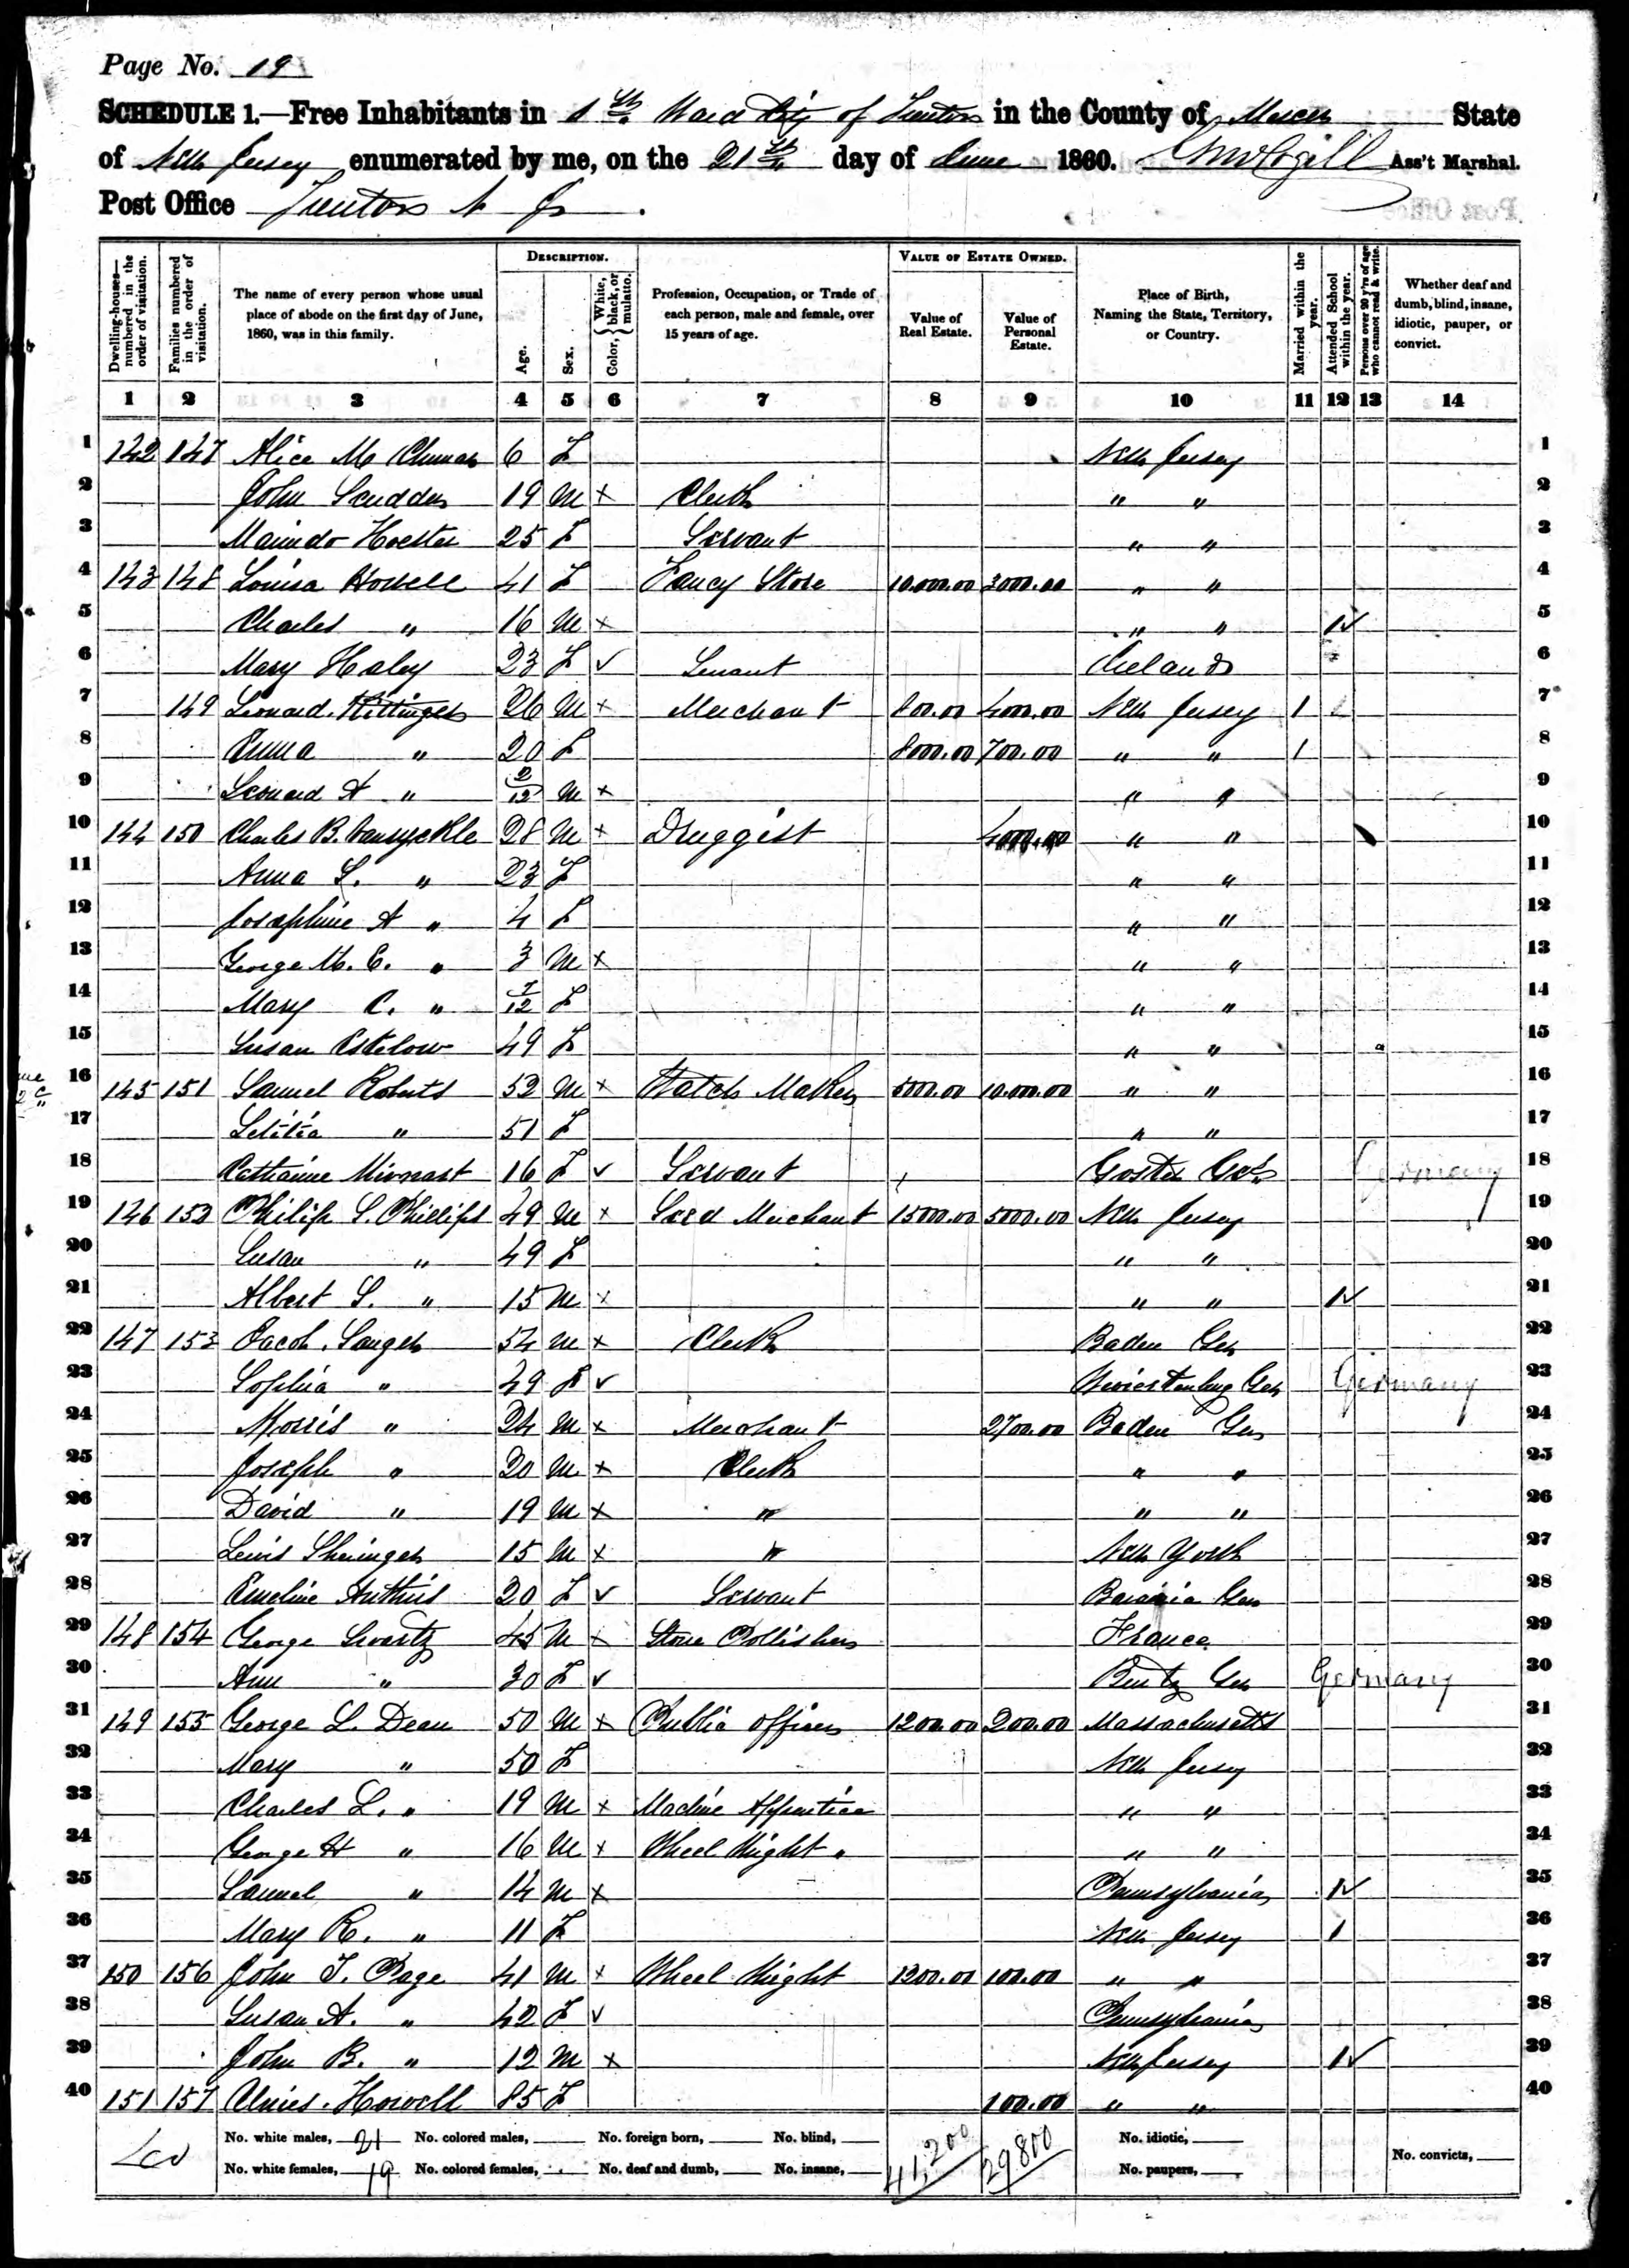 Page No. 19
SCHEDULE 1.—Free Inhabitants in 1th Ward City of Trenton in the County of Mercer State
of New Jersey enumerated by me, on the 21th day of June 1860. Ass't Marshal.
Post Office Trenton N J
Dwelling-houses—numbered in the order of visitation.
Families numbered in the order of visitation.
The name of every person whose usual place of abode on the first day of June, 1860, was in this family.
DESCRIPTION.
Age.
Sex.
Color, { White, black, or mulatto.
Profession, Occupation, or Trade of each person, male and female, over 15 years of age.
VALUE OF ESTATE OWNED.
Value of Real Estate.
Value of Personal Estate.
Place of Birth, Naming the State, Territory, or Country.
Married within the year.
Attended School within the year.
Persons over 20 y'rs of age who cannot read & write.
Whether deaf and dumb, blind, insane, idiotic, pauper, or convict.
1 2 3 4 5 6 7 8 9 10 11 12 13 14
1 142 147 Alice M 6 F New Jersey 1
2 John Scudder 19 M x Clerk " " 2
3 25 F Servant " " 3
4 143 148 Louisa Howell 41 F Fancy Store 10.000.00 3000.00 " " 4
5 Charles " 16 M x " " 1 ✓ 5
6 Mary Haley 23 F ✓ Servant Ireland 6
7 149 Leonard 26 M x Merchant 800.00 4000.00 New Jersey 1 7
8 Anna " 20 F 8000.00 700.00 " " 1 8
9 Leonard A " 2/12 M x " " 9
10 144 150 Charles B. Vansyckle 28 M x Druggist 4000.00 " " 10
11 Anna L. " 23 F " " 11
12 Josephine A " 4 F " " 12
13 George M. C. " 3 M x " " 13
14 Mary C. " 7/12 F " " 14
15 Susan Estelow 49 F " " 15
16 145 151 Samuel Roberts 52 M x Watch Maker 5000.00 10.000.00 " " 16
17 Letitia " 51 F " " 17
18 Catharine 16 F ✓ Servant Germany 18
19 146 152 Philip S. Phillips 49 M x Seed Merchant 15000.00 5000.00 New Jersey 19
20 Susan " 49 F " " 20
21 Albert S. " 15 M x " " 1 ✓ 21
22 147 153 Jacob Sanger 54 M x Clerk Baden Ger 22
23 Sophia " 49 F ✓ Wirertenburg Ger Germany 23
24 Morris " 24 M x Merchant 2700.00 Baden Ger 24
25 Joseph " 20 M x Clerk " " 25
26 David " 19 M x " " " 26
27 Lewis 15 M x " New York 27
28 Emeline 20 F ✓ Servant Bavaria Ger 28
29 148 154 George Swartz 45 M x Stone Pollisher France 29
30 Ann " 30 F ✓ Ger Germany 30
31 149 155 George L. Dean 50 M x Public officer 1200.00 200.00 Massachusetts 31
32 Mary " 50 F New Jersey 32
33 Charles L. " 19 M x Machine Apprentice " " 33
34 George H " 16 M x Wheel Wright " " " 34
35 Samuel " 14 M x Pennsylvania 1 ✓ 35
36 Mary R. " 11 F New Jersey 1 36
37 150 156 John T. Page 41 M x Wheel Wright 1200.00 100.00 " " 37
38 Susan A. " 42 F ✓ Pennsylvania 38
39 John B. " 12 M x New Jersey 1 ✓ 39
40 151 157 Howell 85 F 100.00 " " 40
No. white males, 21 No. colored males, No. foreign born, No. blind, 41,200 29800 No. idiotic,
No. white females, 19 No. colored females, No. deaf and dumb, No. insane, No. paupers, No. convicts,